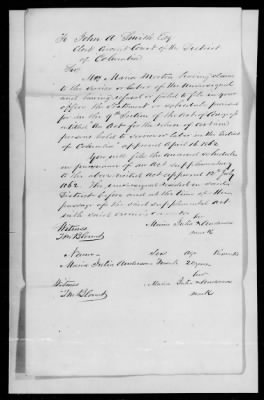 To John A Smith Esq
Clerk Circuit Court of the District
of Columbia
Sir
Mrs Maria Morton having claim
to the service or labor of the undersigned
and having refused or failed to file in your
office the statement or schedule provided
for in the 9th Section of the Act of Congress
entitled An Act for the release of certain
persons held to service or labor in the District
of Columbia approved April 16 1862
You will file the annexed schedule
in pursuance of an act supplementary
to the above recited Act approved 12th July
1862. The undersigned resided in said
District before and at the time of the
passage of the said supplemental act
with said
Witness her
J M Blount Maria Julia X Anderson
mark
Name Sex Age Remarks
Maria Julia Anderson Female 20 years
her
Witness Maria Julia X Anderson
J M Blount mark